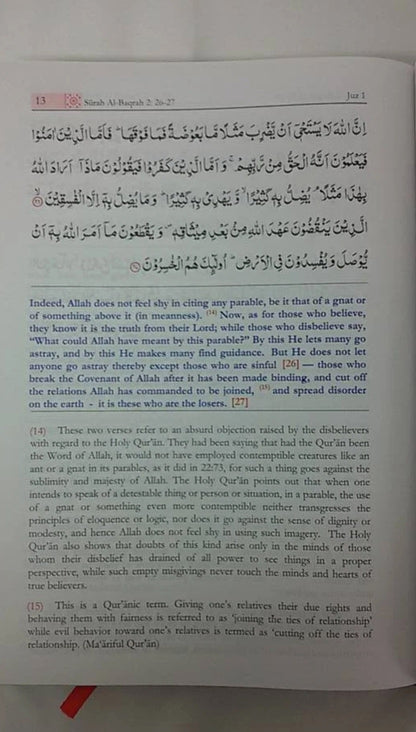 13 Sūrah Al-Baqrah 2: 26-27 Juz 1
اِنَّ اللّٰهَ لَا يَسْتَحْيٖٓ اَنْ يَّضْرِبَ مَثَلًا مَّا بَعُوْضَةً فَمَا فَوْقَهَا ؕ فَاَمَّا الَّذِيْنَ اٰمَنُوْا
فَيَعْلَمُوْنَ اَنَّهُ الْحَقُّ مِنْ رَّبِّهِمْ ۚ وَ اَمَّا الَّذِيْنَ كَفَرُوْا فَيَقُوْلُوْنَ مَاذَاۤ اَرَادَ اللّٰهُ
بِهٰذَا مَثَلًا ۘ يُضِلُّ بِهٖ كَثِيْرًا ۙ وَّ يَهْدِيْ بِهٖ كَثِيْرًا ؕ وَ مَا يُضِلُّ بِهٖۤ اِلَّا الْفٰسِقِيْنَ ۙ﴿۲۶﴾
الَّذِيْنَ يَنْقُضُوْنَ عَهْدَ اللّٰهِ مِنْۢ بَعْدِ مِيْثَاقِهٖ ۪ وَ يَقْطَعُوْنَ مَاۤ اَمَرَ اللّٰهُ بِهٖۤ اَنْ
يُّوْصَلَ وَ يُفْسِدُوْنَ فِي الْاَرْضِ ؕ اُولٰٓئِكَ هُمُ الْخٰسِرُوْنَ ﴿۲۷﴾
Indeed, Allah does not feel shy in citing any parable, be it that of a gnat or
of something above it (in meanness). (14) Now, as for those who believe,
they know it is the truth from their Lord; while those who disbelieve say,
“What could Allah have meant by this parable?” By this He lets many go
astray, and by this He makes many find guidance. But He does not let
anyone go astray thereby except those who are sinful [26] — those who
break the Covenant of Allah after it has been made binding, and cut off
the relations Allah has commanded to be joined, (15) and spread disorder
on the earth - it is these who are the losers. [27]
(14) These two verses refer to an absurd objection raised by the disbelievers
with regard to the Holy Qur’ān. They had been saying that had the Qur’ān been
the Word of Allah, it would not have employed contemptible creatures like an
ant or a gnat in its parables, as it did in 22:73, for such a thing goes against the
sublimity and majesty of Allah. The Holy Qur’ān points out that when one
intends to speak of a detestable thing or person or situation, in a parable, the use
of a gnat or something even more contemptible neither transgresses the
principles of eloquence or logic, nor does it go against the sense of dignity or
modesty, and hence Allah does not feel shy in using such imagery. The Holy
Qur’ān also shows that doubts of this kind arise only in the minds of those
whom their disbelief has drained of all power to see things in a proper
perspective, while such empty misgivings never touch the minds and hearts of
true believers.
(15) This is a Qur’ānic term. Giving one’s relatives their due rights and
behaving them with fairness is referred to as ‘joining the ties of relationship’
while evil behavior toward one’s relatives is termed as ‘cutting off the ties of
relationship. (Ma‘āriful Qur’ān)